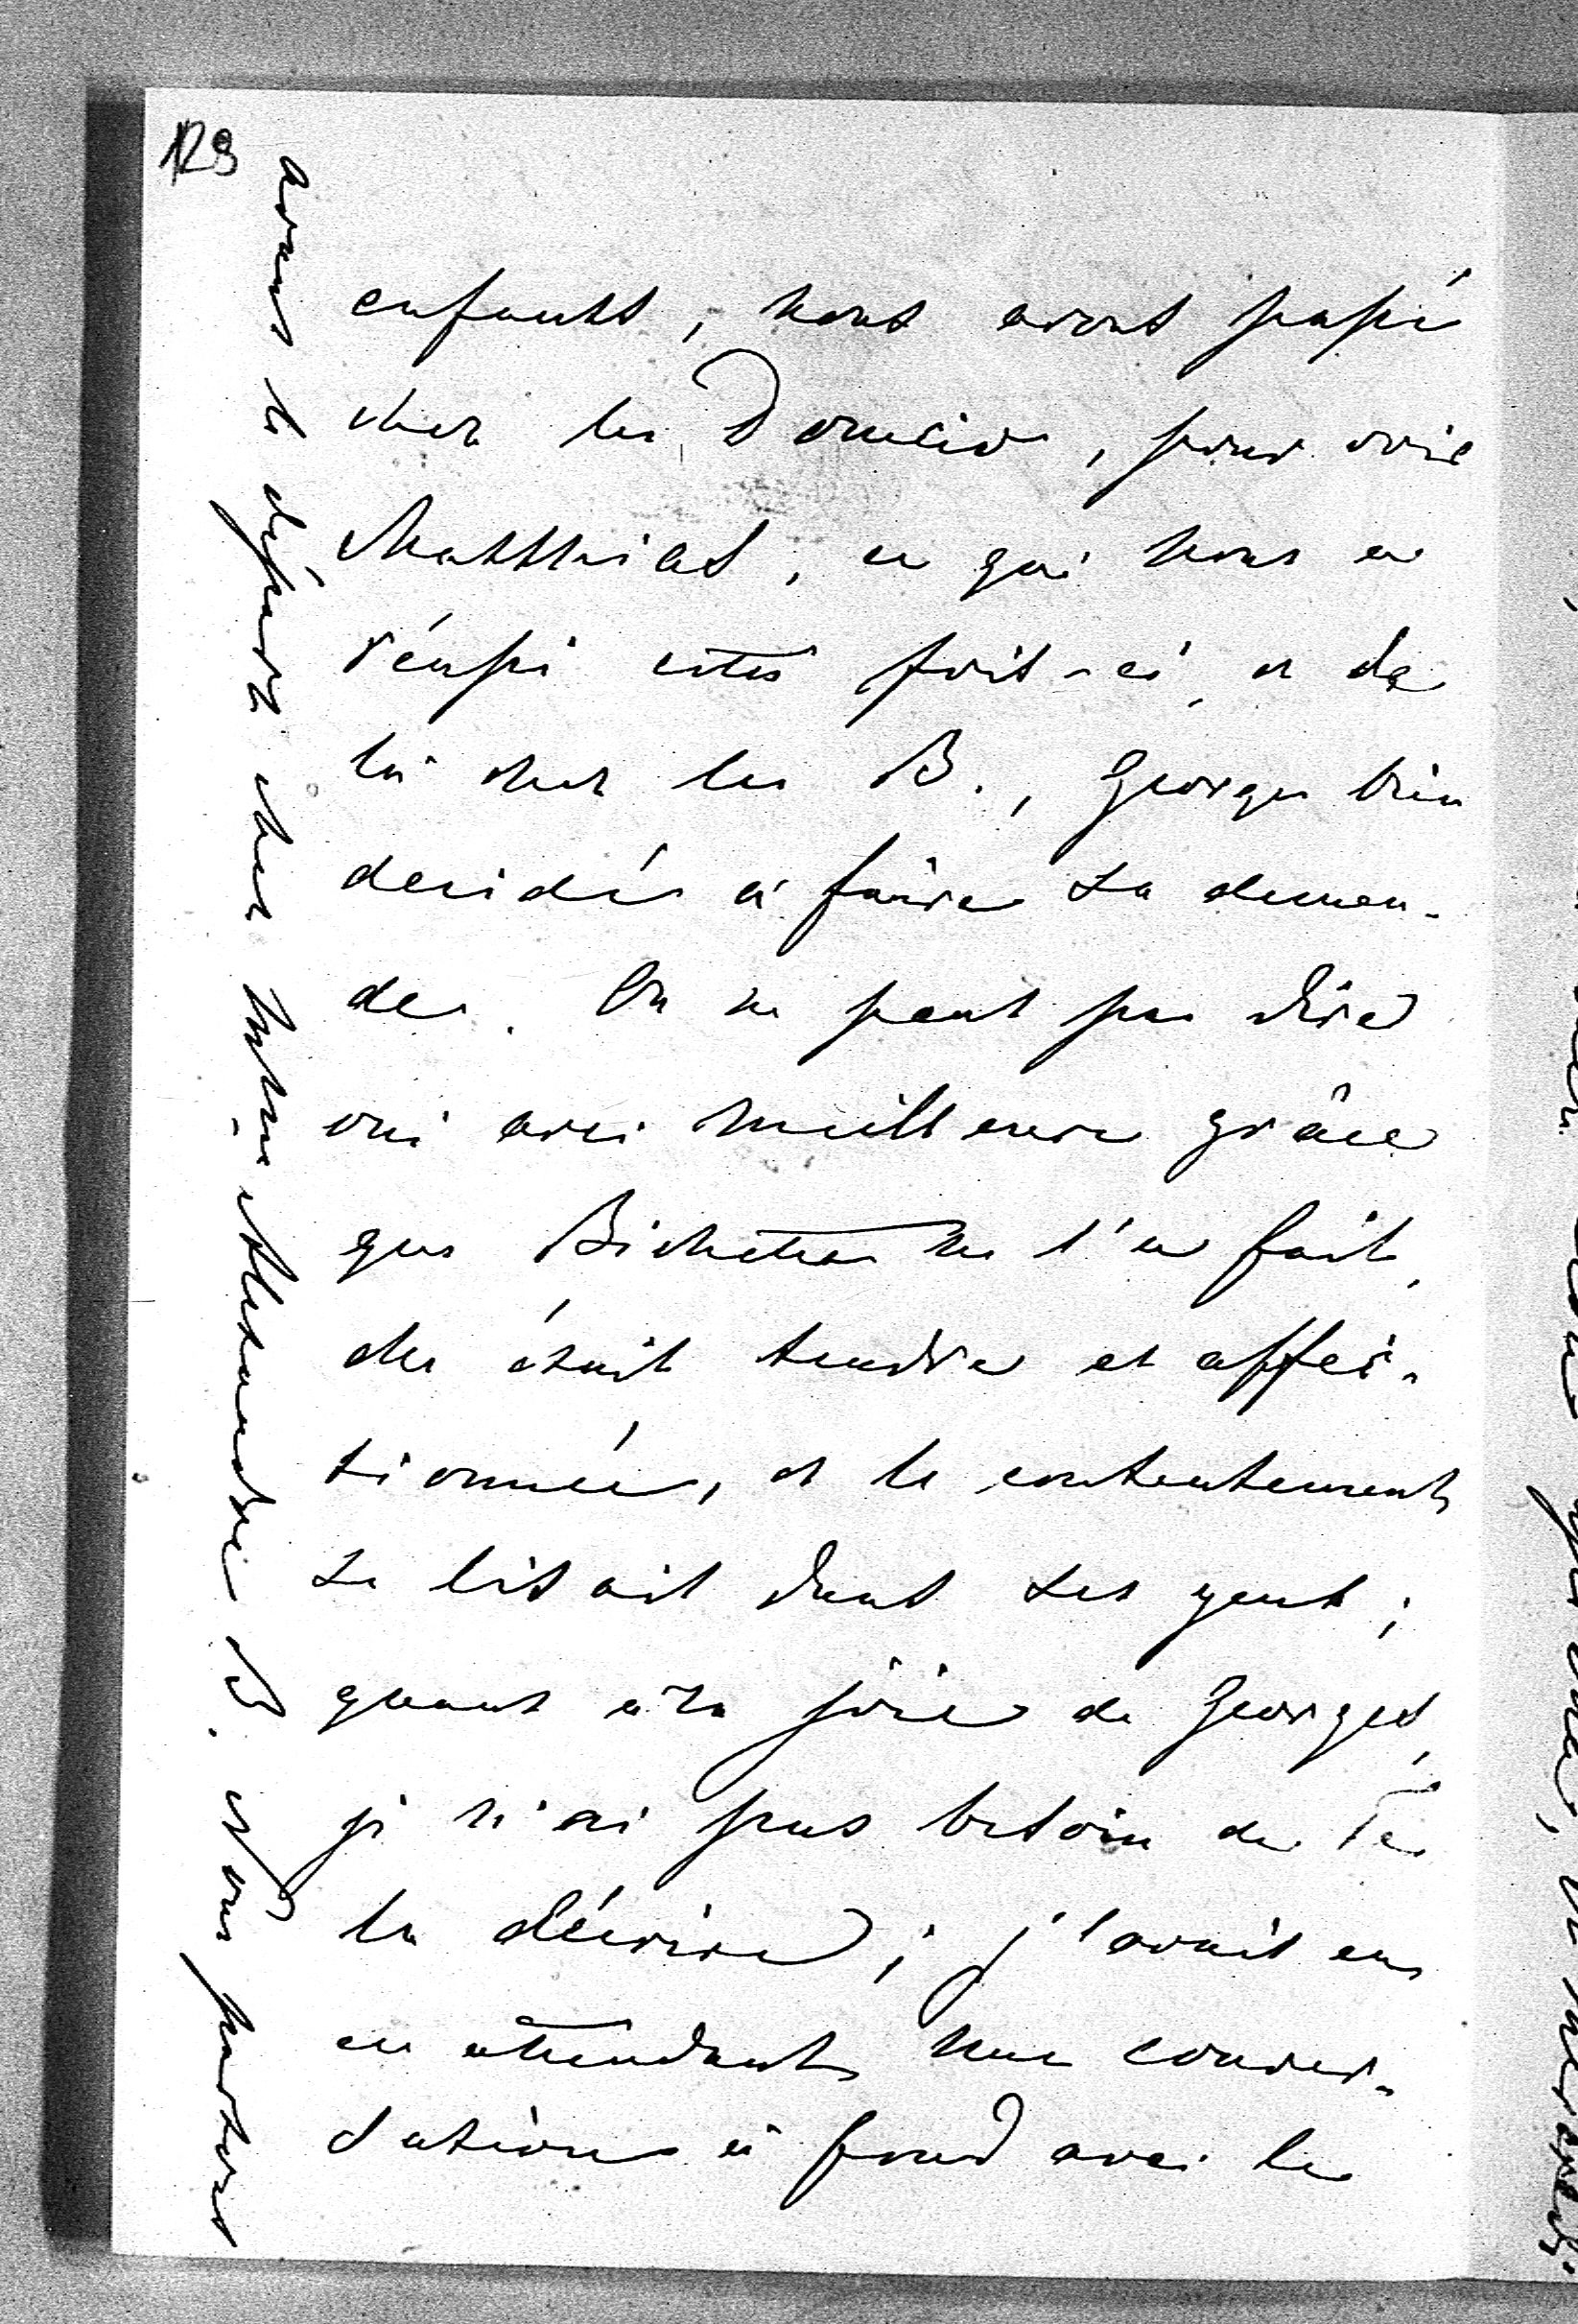 129
enfants, nous avons passé
chez les Donició, pour voir
Matthias, ce qui nous a
réussi cette fois-ci, et de
là chez les B., Georges bien
decidé à faire sa deman-
de. On ne peut pas dire
oui avec meilleure grâce
que Bichette ne l'a fait,
elle était tendre et affec-
tionnée, et le contentement
se lisait dans ses yeux;
quant à la joie de Georges,
je n'ai pas besoin de Te
la décrire; j'avais eu
en attendant une conver-
sation à fond avec le
avant le départ chez
Alexandre B. Nous partons